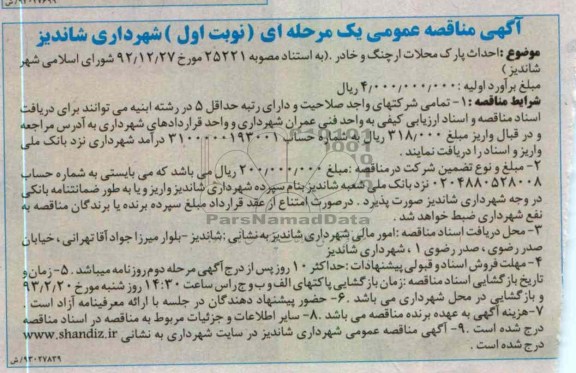 آگهی مناقصه عمومی یک مرحله ای (نوبت اول) شهرداری شاندیز
موضوع : احداث پارک محلات ارچنگ و خادر . (به استناد مصوبه ۲۵۲۲۱ مورخ ۹۲,۱۲,۲۷ شورای اسلامی شهر
شاندیز)
مبلغ برآورد اولیه : ۴,۰۰۰,۰۰۰,۰۰۰ ریال
شرایط مناقصه : ۱- تمامی شرکتهای واجد صلاحیت و دارای رتبه حداقل ۵ در رشته ابنیه می توانند برای دریافت
اسناد مناقصه و اسناد ارزیابی کیفی به واحد فنی عمران شهرداری و واحد قراردادهای شهرداری به آدرس مراجعه
و در قبال واریز مبلغ ۳۱۸,۰۰۰ ریال به شماره حساب ۳۱۰۰۰۰۰۱۹۳۰۰۱ درآمد شهرداری نزد بانک ملی
واریز و اسناد را دریافت نمایند .
۲- مبلغ و نوع تضمین شرکت در مناقصه : مبلغ ۲۰۰,۰۰۰,۰۰۰ ریال می باشد که می بایستی به شماره حساب
۰۲۰۴۸۸۰۵۲۸۰۰۸ نزد بانک ملی شعبه شاندیز بنام سپرده شهرداری شاندیز واریز و یا به طور ضمانتنامه بانکی
در وجه شهرداری شاندیز صورت پذیرد . در صورت امتناع از عقد قرارداد مبلغ سپرده برنده یا برندگان مناقصه به
نفع شهرداری ضبط خواهد شد .
۳- محل دریافت اسناد مناقصه : امور مالی شهرداری شاندیز به نشانی : شاندیز -بلوار میرزا جواد آقا تهرانی ، خیابان
صدر رضوی ، صدر رضوی ۱ ، شهرداری شاندیز
۴- مهلت فروش اسناد و قبولی پیشنهادات : حداکثر ۱۰ روز پس از درج آگهی مرحله دوم روزنامه میباشد . ۵- زمان و
تاریخ بازگشایی اسناد مناقصه : زمان بازگشایی پاکتهای الف و ب و ج راس ساعت ۱۴:۳۰ روز شنبه مورخ ۹۳/۲/۲۰
و بازگشایی در محل شهرداری می باشد . ۶- حضور پیشنهاد دهندگان در جلسه با ارائه معرفینامه آزاد است .
۷- هزینه آگهی به عهده برنده مناقصه می باشد . ۸- سایر اطلاعات و جزئیات مربوط به مناقصه در اسناد مناقصه
درج شده است . ۹- آگهی مناقصه عمومی شهرداری شاندیز در سایت شهرداری به نشانی www.shandiz.ir
درج شده است .
۹۳۰۲۷۸۲۹/ش
ParsNamadData